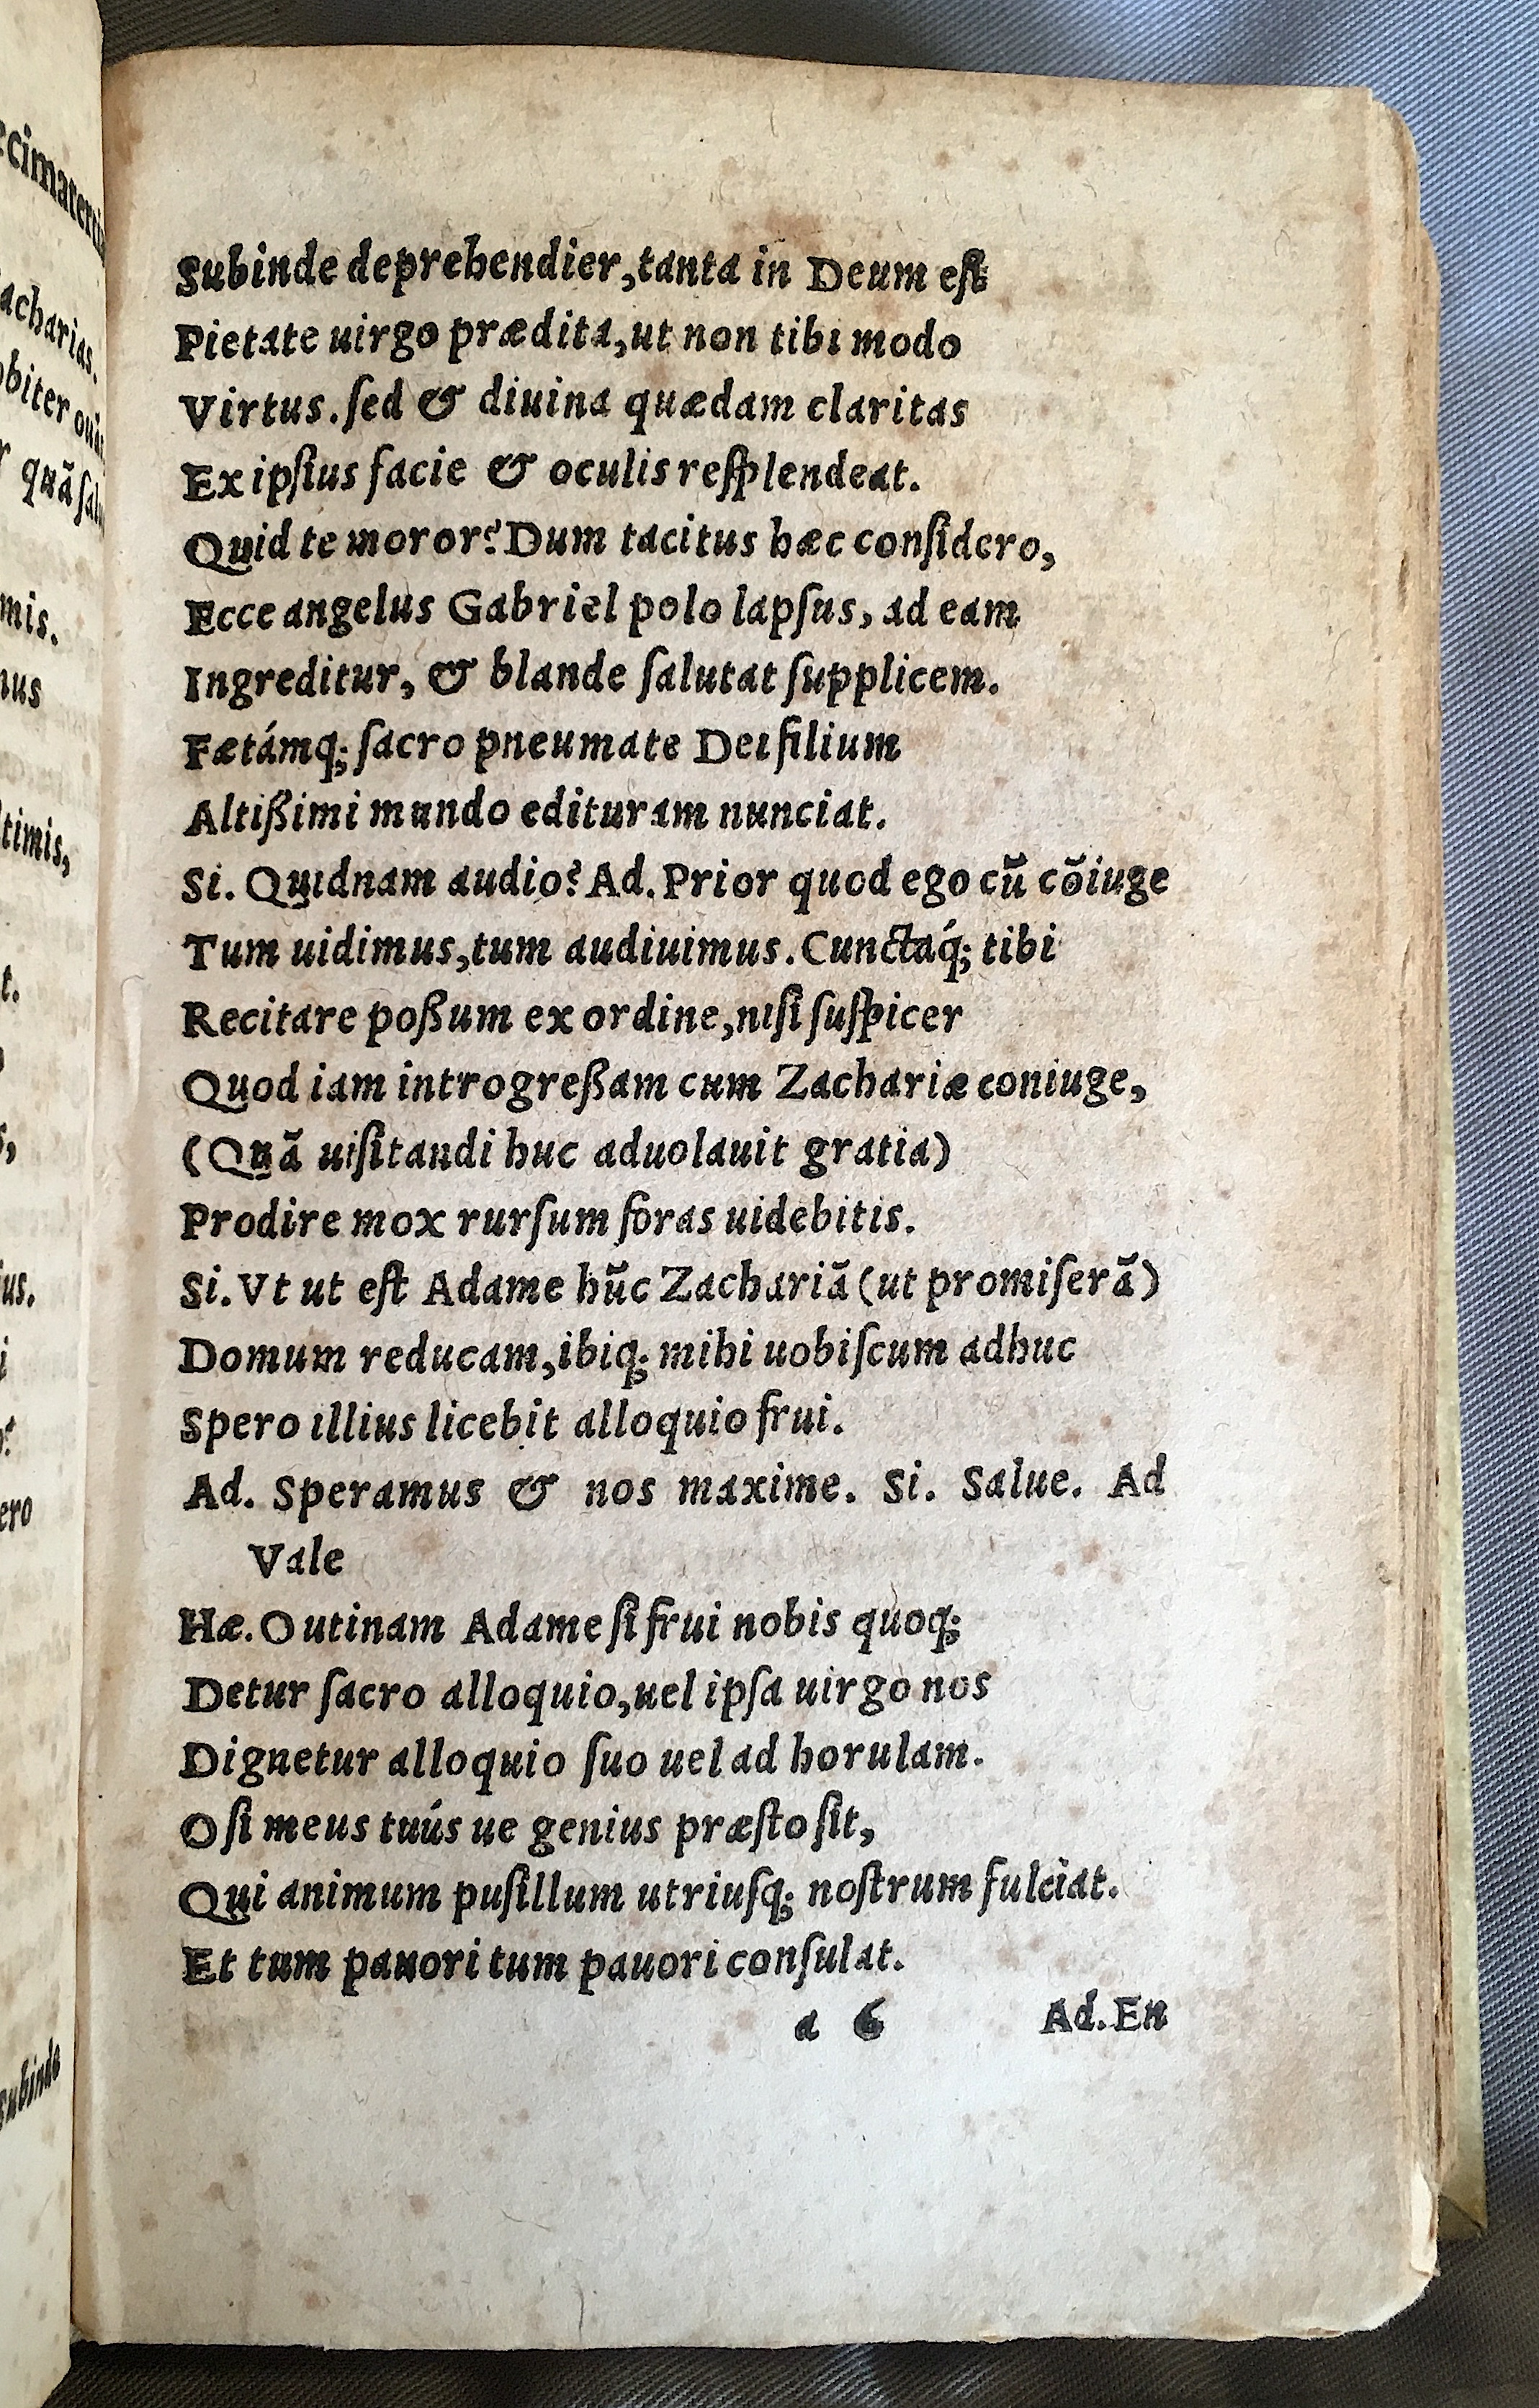 ecimaterti
acharias.
obiter oui
r quã ſal
mis.
nus
timis,
t.
s,
ius.
i
ero
Subinde
Subinde deprehendier,tanta in Deum eſt
Pietate uirgo prædita,ut non tibi modo
Virtus.ſed & diuina quædam claritas
Ex ipſius facie & oculis reſplendeat.
Quid te moror? Dum tacitus hæc conſidero,
Ecce angelus Gabriel polo lapſus, ad eam
Ingreditur, & blande ſalutat ſupplicem.
Fætámq; ſacro pneumate Dei filium
Altißimi mundo edituram nunciat.
Si. Quidnam audio? Ad. Prior quod ego cũ cõiuge
Tum uidimus,tum audiuimus. Cunctaq́; tibi
Recitare poßum ex ordine,niſi ſuſpicer
Quod iam introgreßam cum Zachariæ coniuge,
(Quã uiſitandi huc aduolauit gratia)
Prodire mox rurſum foras uidebitis.
Si. Vt ut eſt Adame hũc Zachariã (ut promiſerã)
Domum reducam,ibiq; mihi uobiſcum adhuc
Spero illius licebit alloquio frui.
Ad. Speramus & nos maxime. Si. Salue. Ad
Vale
Hæ. O utinam Adame ſi frui nobis quoq;
Detur ſacro alloquio,uel ipſa uirgo nos
Dignetur alloquio ſuo uel ad horulam.
O ſi meus tuús ue genius præſto ſit,
Qui animum puſillum utriuſq; noſtrum fulciat.
Et tum pauori tum pauori conſulat.
a 6 Ad. En